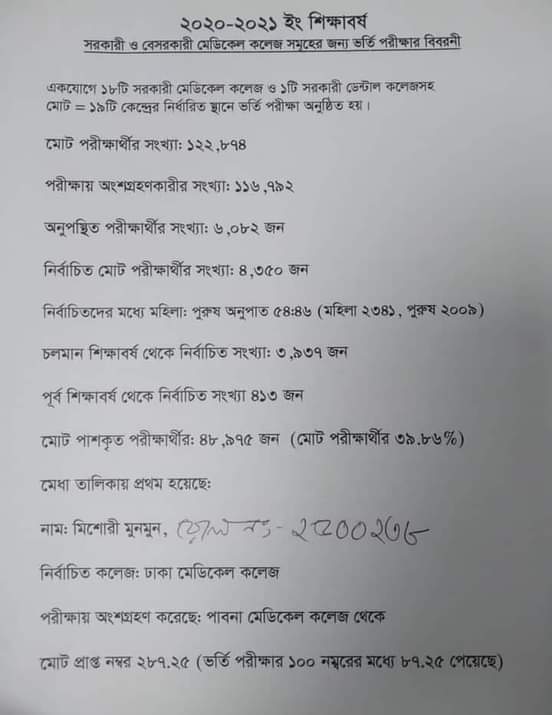 ২০২০-২০২১ ইং শিক্ষাবর্ষ
সরকারী ও বেসরকারী মেডিকেল কলেজ সমূহের জন্য ভর্তি পরীক্ষার বিবরনী
একযোগে ১৮টি সরকারী মেডিকেল কলেজ ও ১টি সরকারী ডেন্টাল কলেজসহ
মোট = ১৯টি কেন্দ্রের নির্ধারিত স্থানে ভর্তি পরীক্ষা অনুষ্ঠিত হয়।
মোট পরীক্ষার্থীর সংখ্যা: ১২২,৮৭৪
পরীক্ষায় অংশগ্রহণকারীর সংখ্যা: ১১৬,৭৯২
অনুপস্থিত পরীক্ষার্থীর সংখ্যা: ৬,০৮২ জন
নির্বাচিত মোট পরীক্ষার্থীর সংখ্যা: ৪,৩৫০ জন
নির্বাচিতদের মধ্যে মহিলা: পুরুষ অনুপাত ৫৪:৪৬ (মহিলা ২৩৪১, পুরুষ ২০০৯)
চলমান শিক্ষাবর্ষ থেকে নির্বাচিত সংখ্যা: ৩,৯৩৭ জন
পূর্ব শিক্ষাবর্ষ থেকে নির্বাচিত সংখ্যা ৪১৩ জন
মোট পাশকৃত পরীক্ষার্থীর: ৪৮,৯৭৫ জন (মোট পরীক্ষার্থীর ৩৯.৮৬%)
মেধা তালিকায় প্রথম হয়েছে:
নাম: মিশোরী মুনমুন, রোল নং-
নির্বাচিত কলেজ: ঢাকা মেডিকেল কলেজ
পরীক্ষায় অংশগ্রহণ করেছে: পাবনা মেডিকেল কলেজ থেকে
মোট প্রাপ্ত নম্বর ২৮৭.২৫ (ভর্তি পরীক্ষার ১০০ নম্বরের মধ্যে ৮৭.২৫ পেয়েছে)